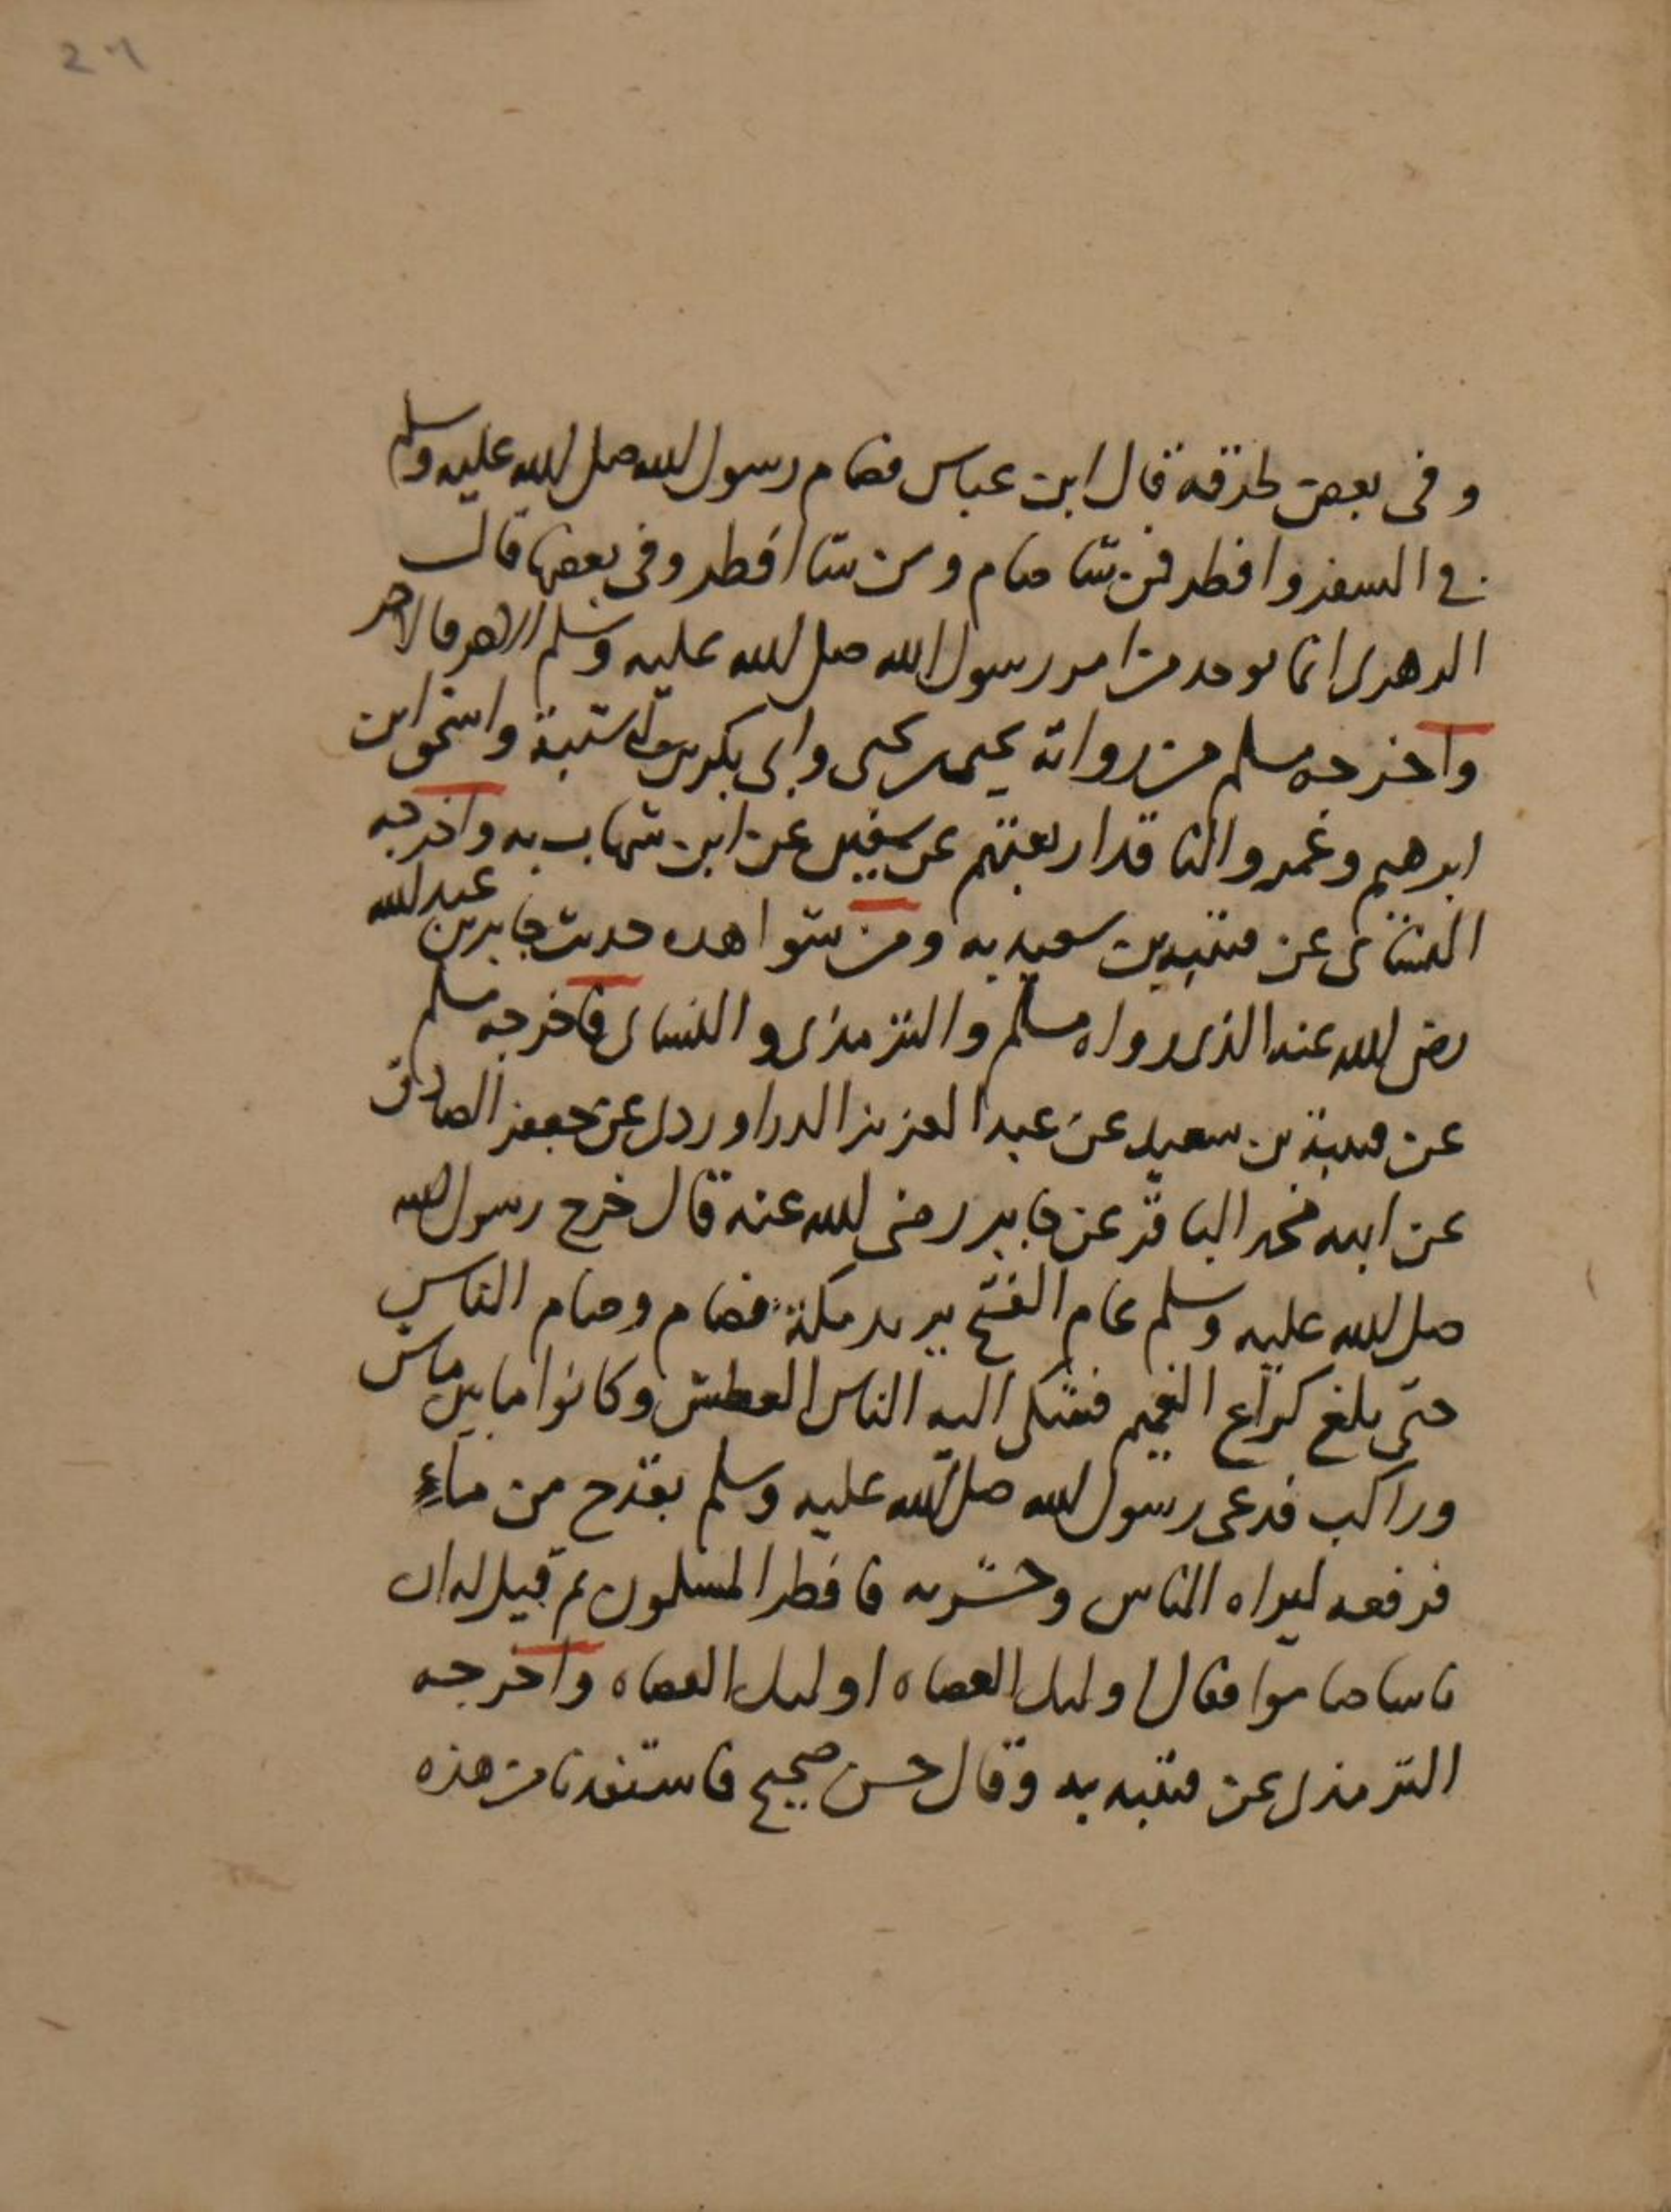 وفى بعض طرقه قال ابن عباس فصام رسول الله صلى الله عليه وسلم
فى السفر وافطر فمن شا صام ومن شا افطر وفى بعضها قال
الزهرى انما يوخذ من امر رسول الله صلى الله عليه وسلم الاخر فالاخر
واخرجه مسلم من رواية يحيى بن يحيى وابى بكر بن ابى شيبة واسحق ابن
ابرهيم وعمرو الناقد اربعتهم عن سفين عن ابن شهاب به واخرجه
النسائى عن قتيبة بن سعيد به ومن شواهده حديث جابر بن عبد الله
رضى الله عنه الذى رواه مسلم والترمذى والنساى فاخرجه مسلم
عن قتيبة بن سعيد عن عبد العزيز الدراوردى عن جعفر الصادق
عن ابيه محمد الباقر عن جابر رضى الله عنه قال خرج رسول الله
صلى الله عليه وسلم عام الفتح يريد مكة فصام وصام الناس
حتى بلغ كراع الغميم فشكى اليه الناس العطش وكانوا ما بين ماش
وراكب فدعى رسول الله صلى الله عليه وسلم بقدح من ماء
فرفعه ليراه الناس وشربه فافطر المسلمون ثم قيل له ان
ناسا صاموا فقال اوليك العصاه اوليك العصاه واخرجه
الترمذى عن قتيبه به وقال حسن صحيح فاستفدنا من هذه